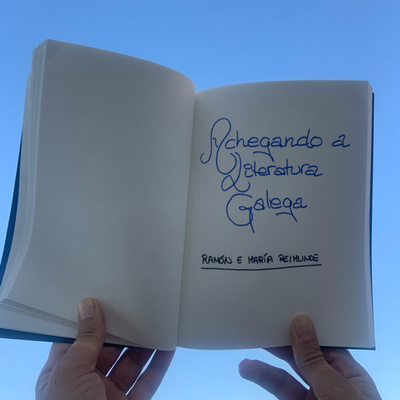 Achegando a
Literatura
Galega
RAMÓN E MARÍA REIMUNDE